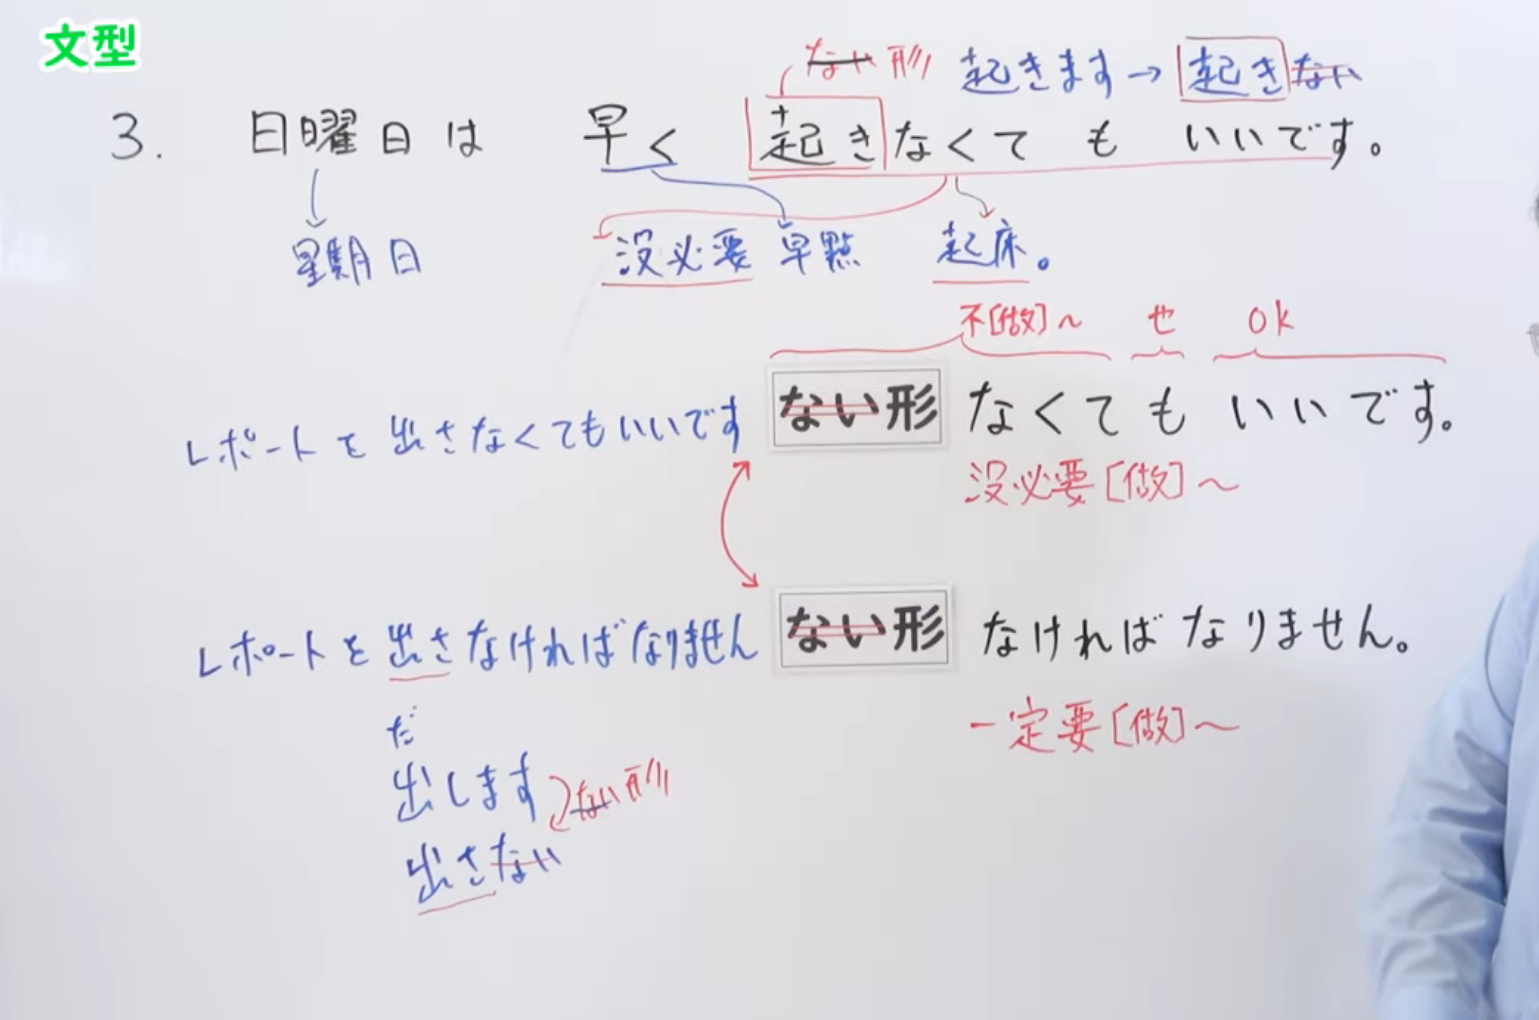 文型
ない形 起きます→起きない
3. 日曜日は 早く 起きなくても いいです。
星期日 没必要 早點 起床。
不[做]~ 也 ok
レポートを 出さなくてもいいです ない形 なくても いいです。
没必要[做]~
レポートを 出さなければなりません ない形 なければなりません。
一定要[做]~
だ
出します ない形
出さない